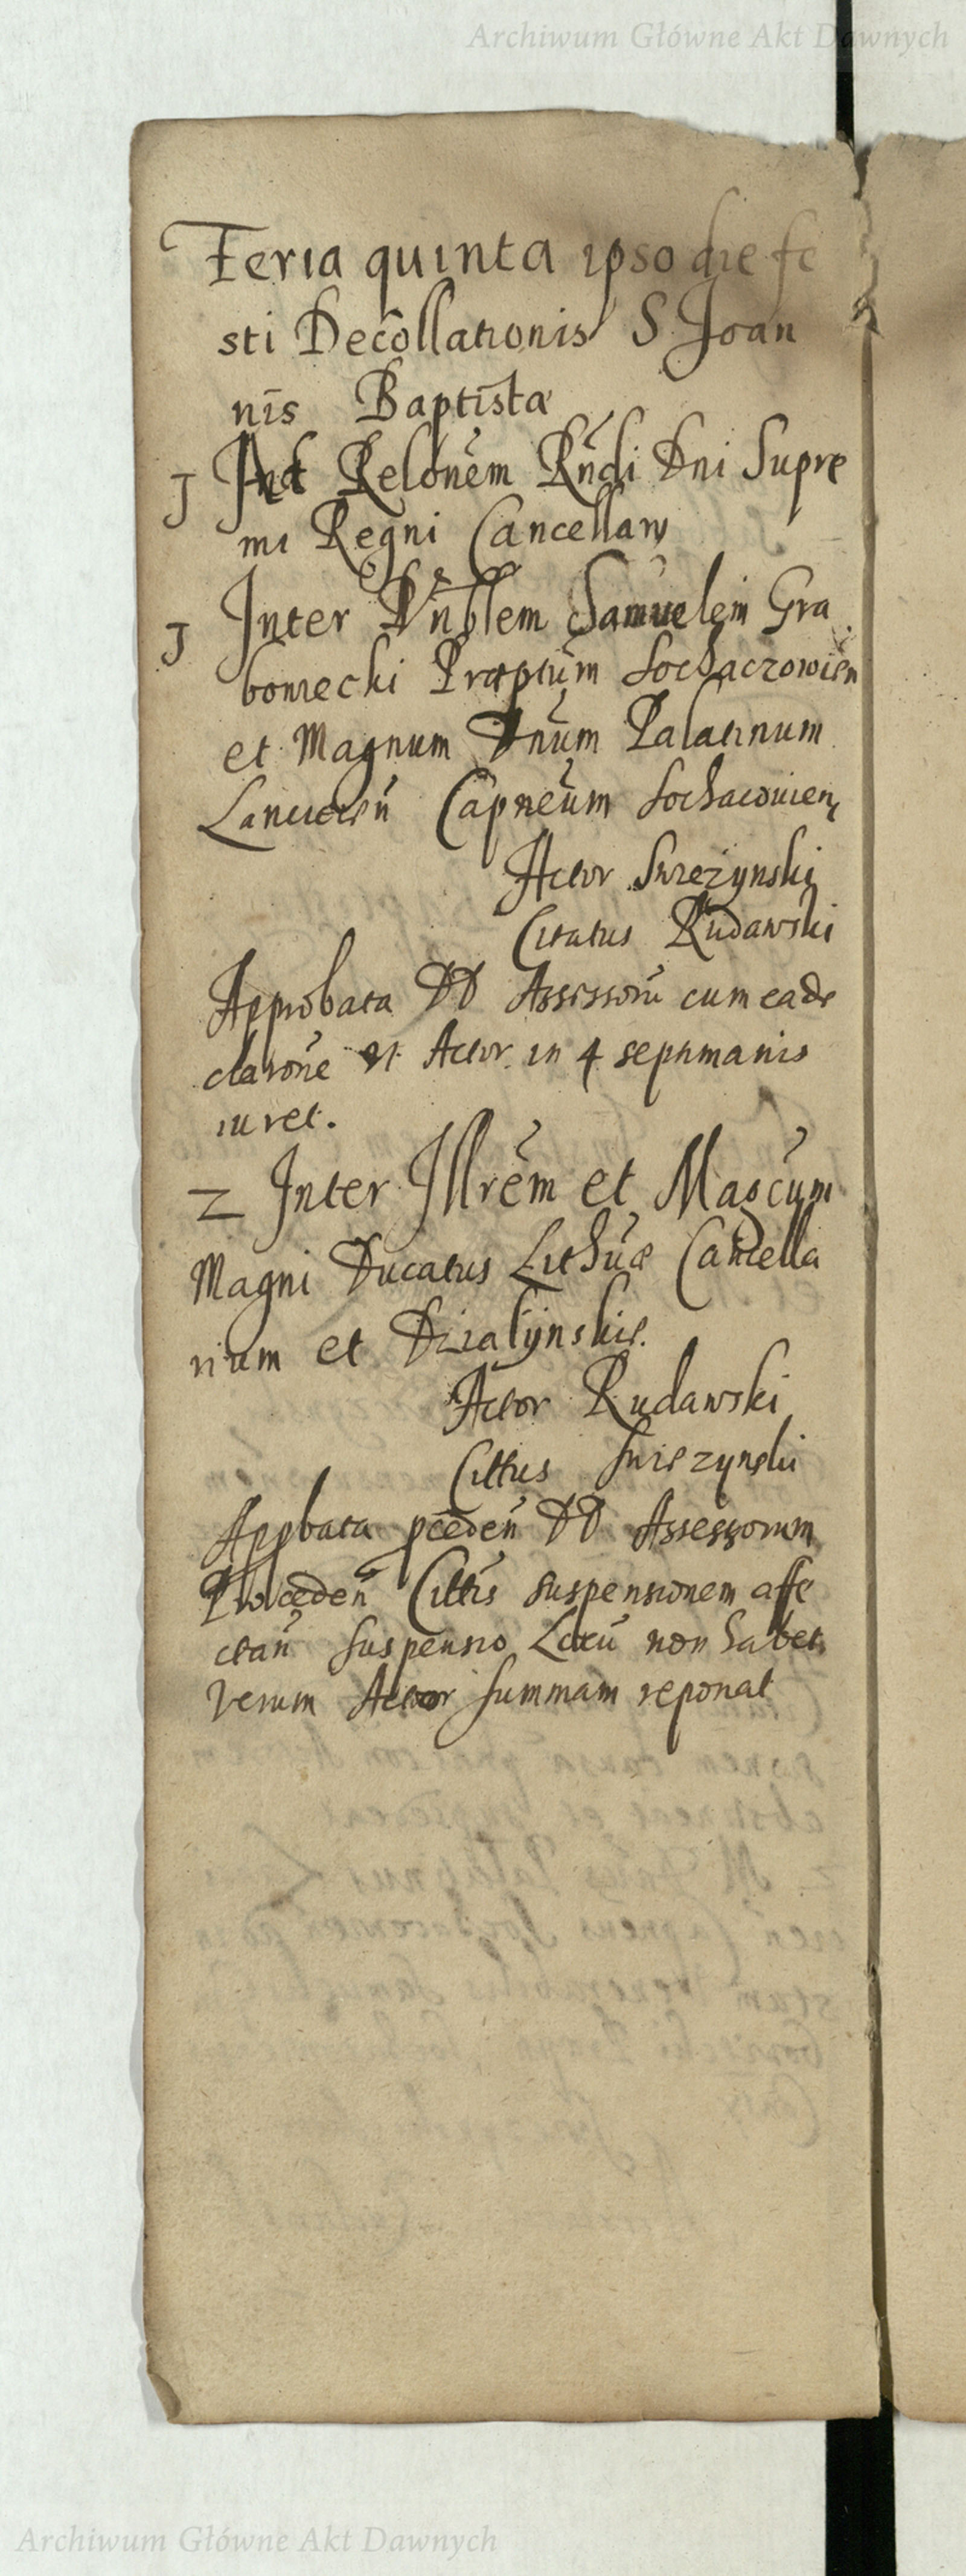 Archiwum Główne Akt Dawnych
Feria quinta ipso die fe
sti Decollationis S Joan
nis Baptistæ
J Ad Relonem Rndi Dni Supre
mi Regni Cancellarij
J Inter Vnblem Samuelem Gra
boniecki Præptum Sochaczowien
et Magnum Dnum Palatinum
Lancicien Capneum Sochacouien
Actor Swiezynski
Citatus Rudawski
Approbata DD Assessoru cum eade
claróne vt Actor in 4 septimanis
iuret.
2 Inter Illrem et Magcum
Magni Ducatus Lithuæ Cancella
rium et Dzialijnskie.
Actor Rudawski
Cittus Swiezynski
Appbata pceden DD Assessorum
Proceden Cittis suspensionem affe
ctan suspensio Locu non habet
verum Actor summam reponat
Archiwum Główne Akt Dawnych